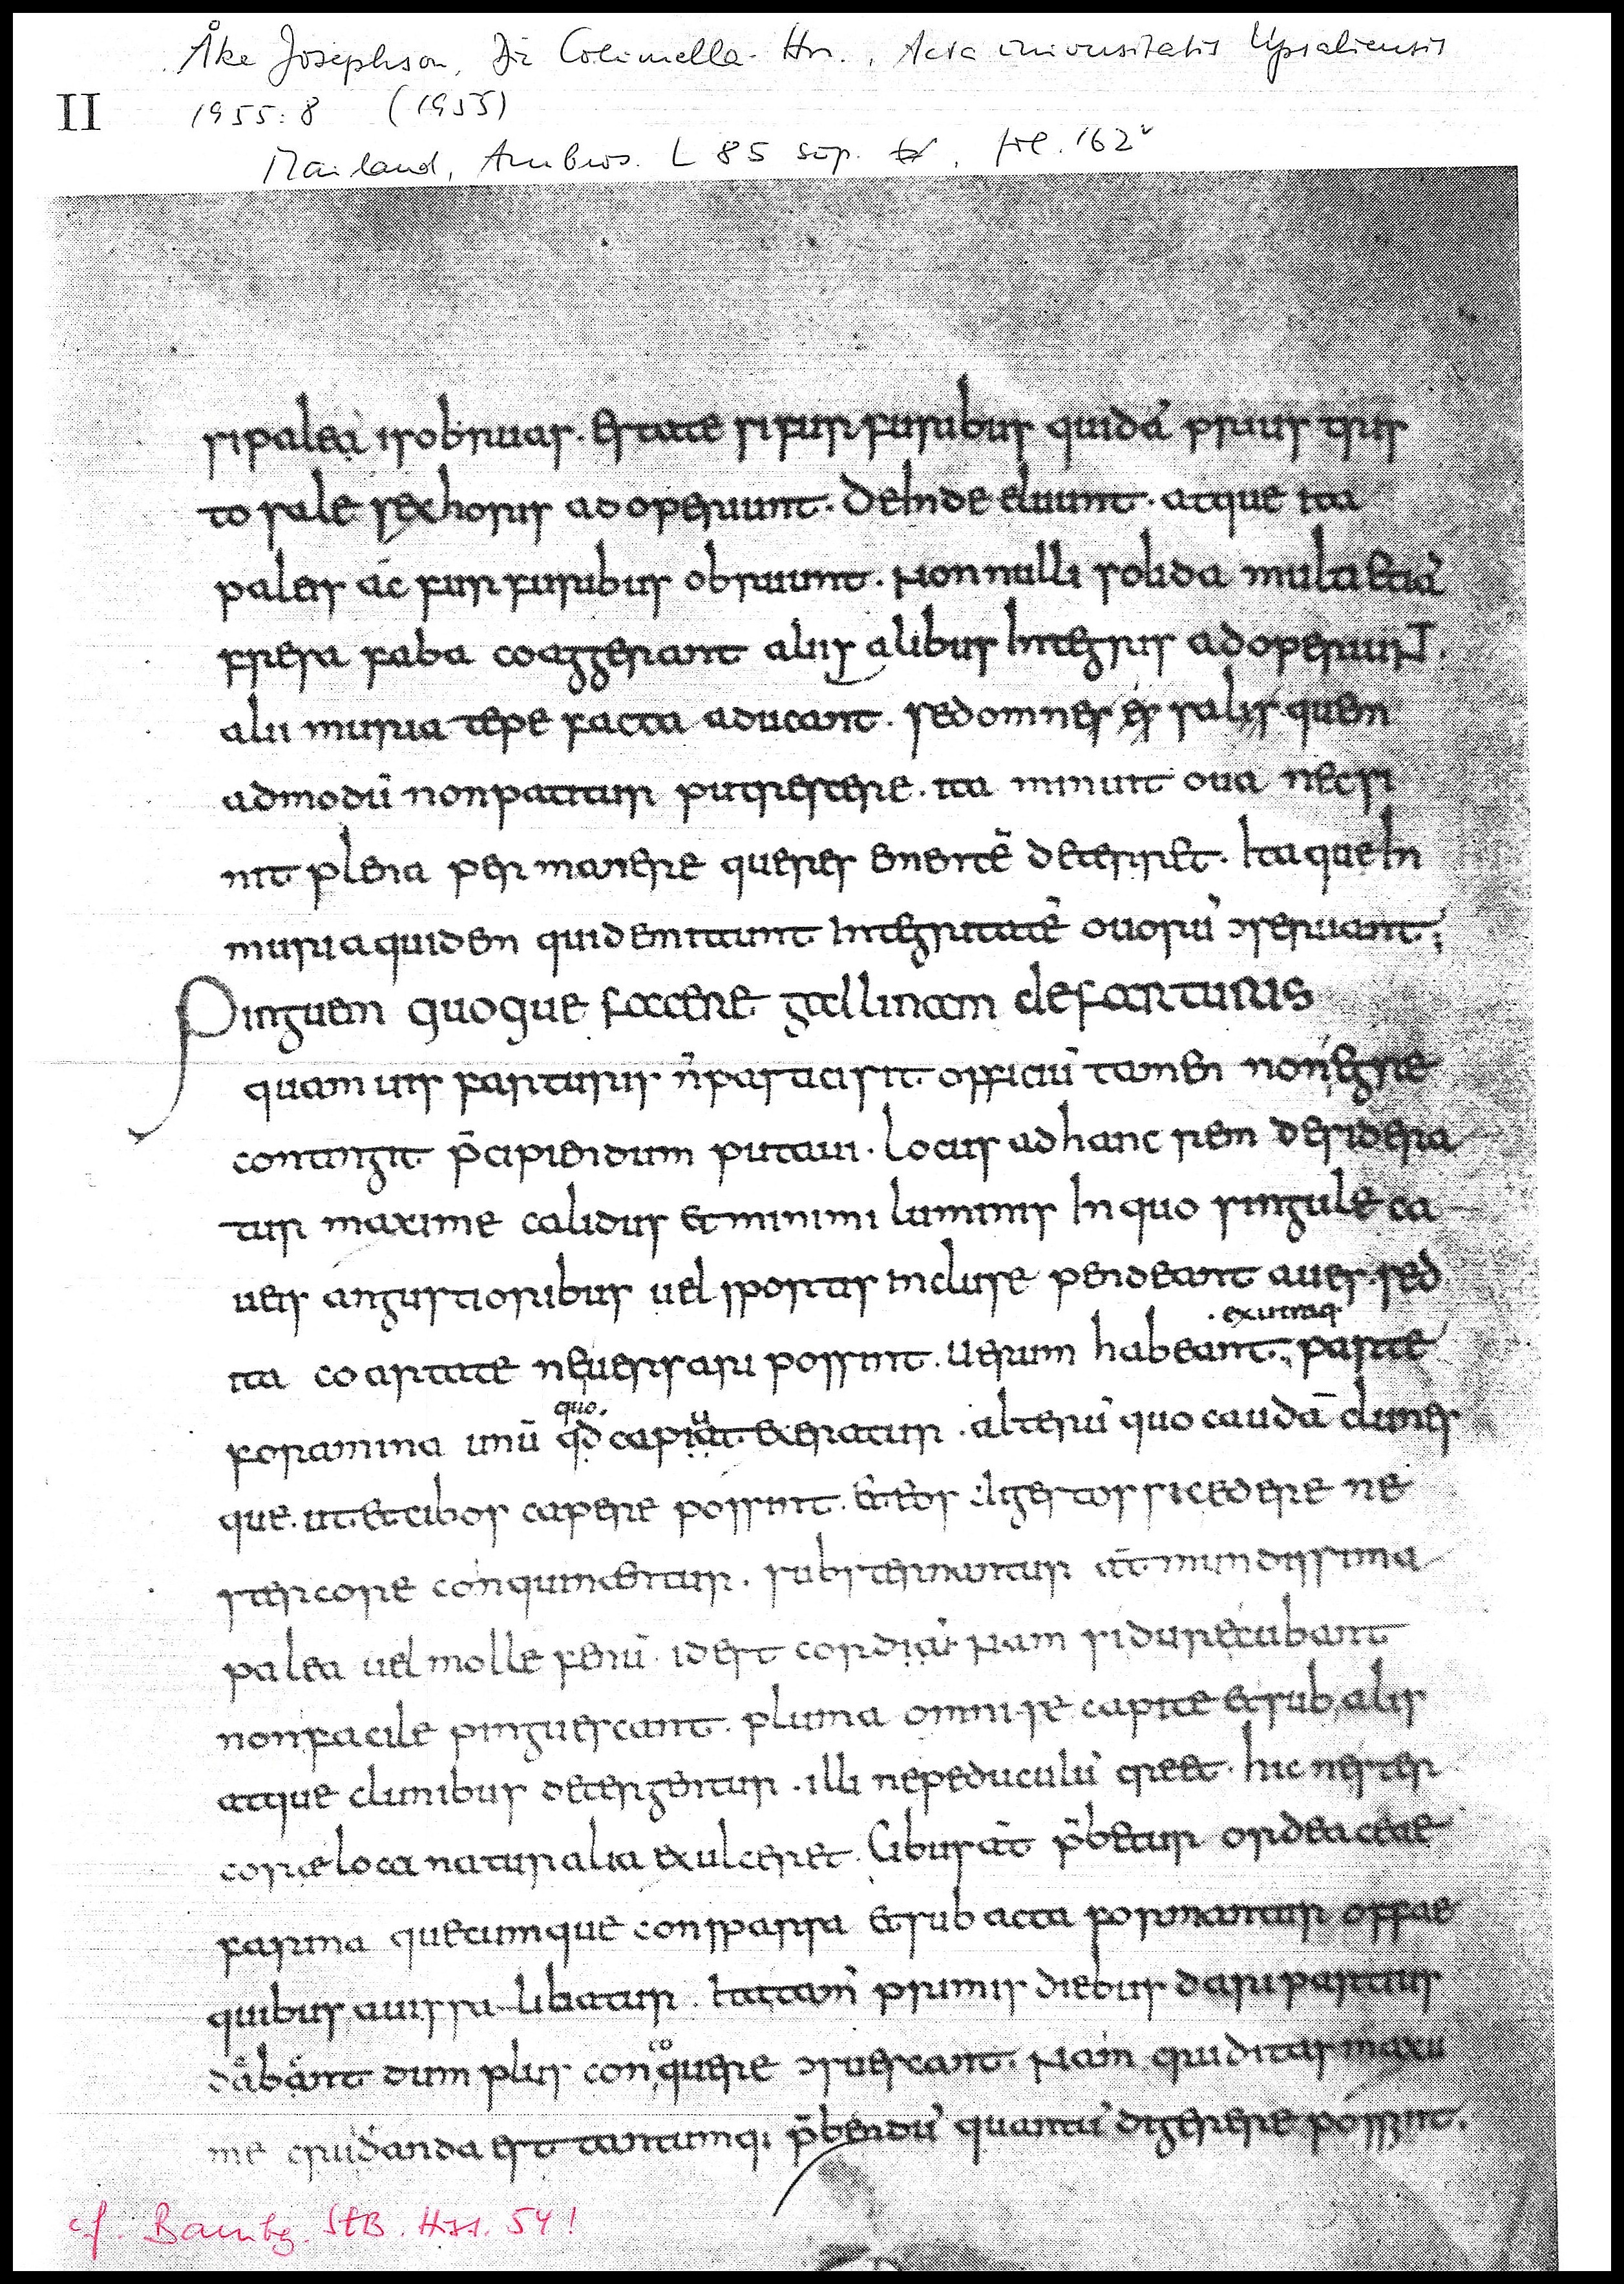 Åke Josephson, Die Columella-Hss., Acta universitatis Upsaliensis
II 1955:8 (1955)
Mailand, Ambros. L 85 sup. , fol. 162v
si paleai is obruas. Estate si furfuribus quidā prius tris
to sale sex horis adoperiunt. Deinde eluunt. atque ita
paleis ac furfuribus obruunt. Non nulli solida multa etiā
fresa faba coaggerant aliis alibus integris adoperiunt.
alii muria tepe facta aducant. sed omnes es salis quem
admodū non patitur putrescere. ita minuit oua nec si
nit plena permanere queres ementē deterret. Itaque in
muria quidem qui demittunt integritatē ouorū ɔseruant;
Pinguem quoque facere gallinam de farturis
quam uis farturis n̄ pastacis sit officiū tamen non egre
contingit p̄cipiendum putaui. Locus ad hanc rem desidera
tur maxime calidus et minimi luminis In quo singule ca
ueis angustioribus uel sportis incluse pendeant aues. sed
ita coartate ne uersari possint. Uerum habeant.
. ex utraq. parte
quo.
foramina unū qđ capiat exeratur. alterū quo caudā clunes
que. ut et cibos capere possint. et eos digestos sic edere ne
stercore conquinentur. substernantur aū mundissima
palea uel molle fenū. id est cordiū. Nam si dure cubant
non facile pinguescant. pluma omnis re capite et sub alis
atque clunibus detergentur. illi ne peduculū creet. hic ne ster
core loca naturalia exulceret. Cibus aū p̄betur ordeaceae
farina que cumque consparsa et sub acta formantur offae
quibus auis sa libatur. Ita tam̄ primis diebus dari partius
dabant dum plus conquere ɔsuescant. Nam cruditas maxi
me cruidanda est tantumq; p̄bendū quantū digerere possint.
cf. Bambg. StB. Hss. 54!